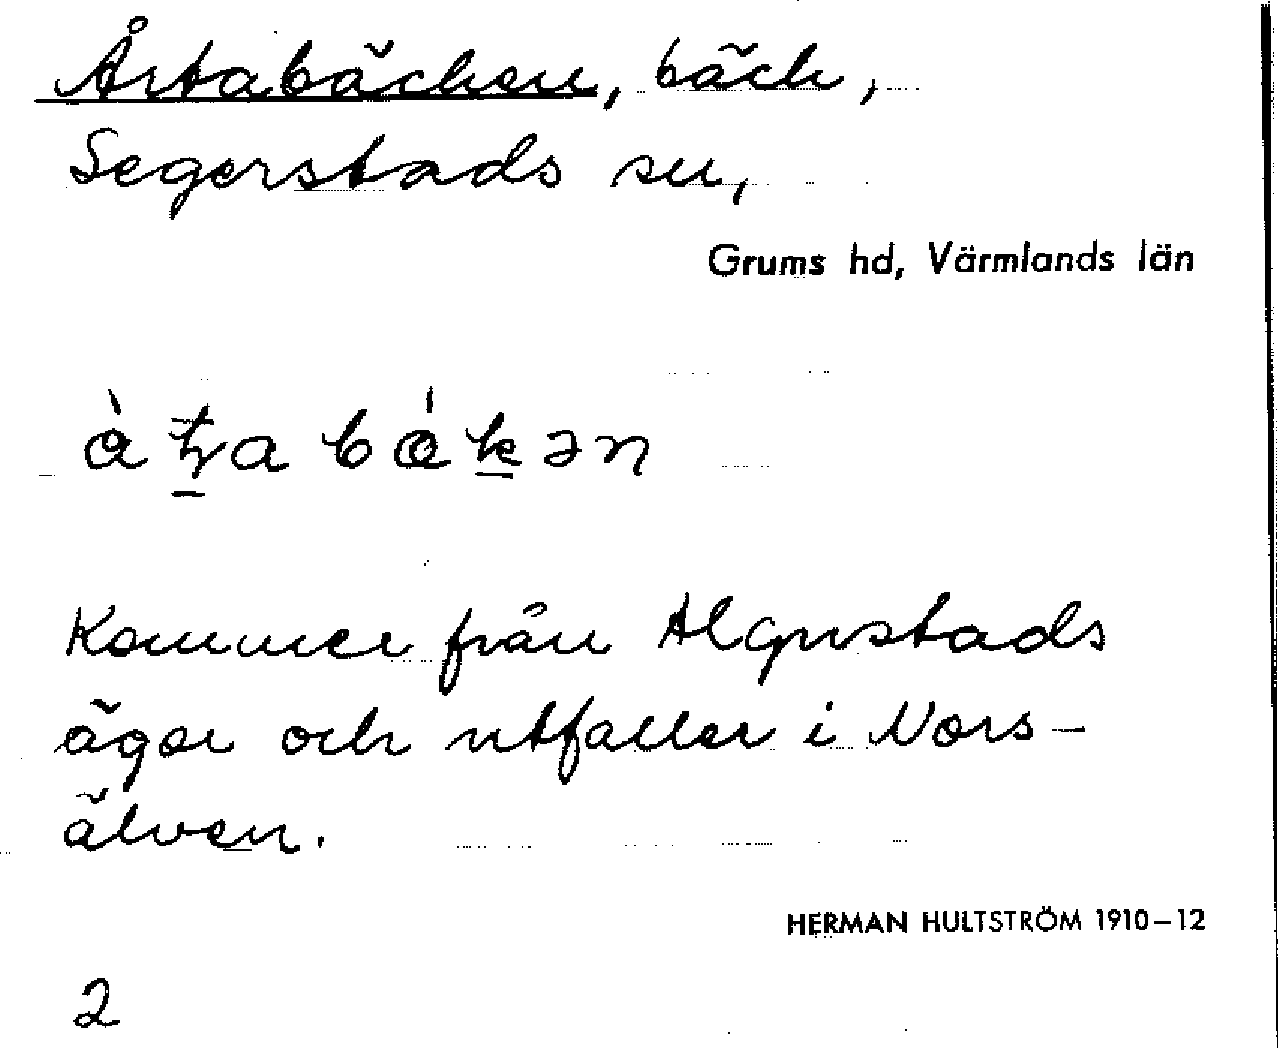 Årtabäcken, bäck,
Segerstads sn,
Grums hd, Värmlands län
Kommer från Algustads
ägor och utfaller i Nors-
älven.
HERMAN HULTSTRÖM 1910–12
2